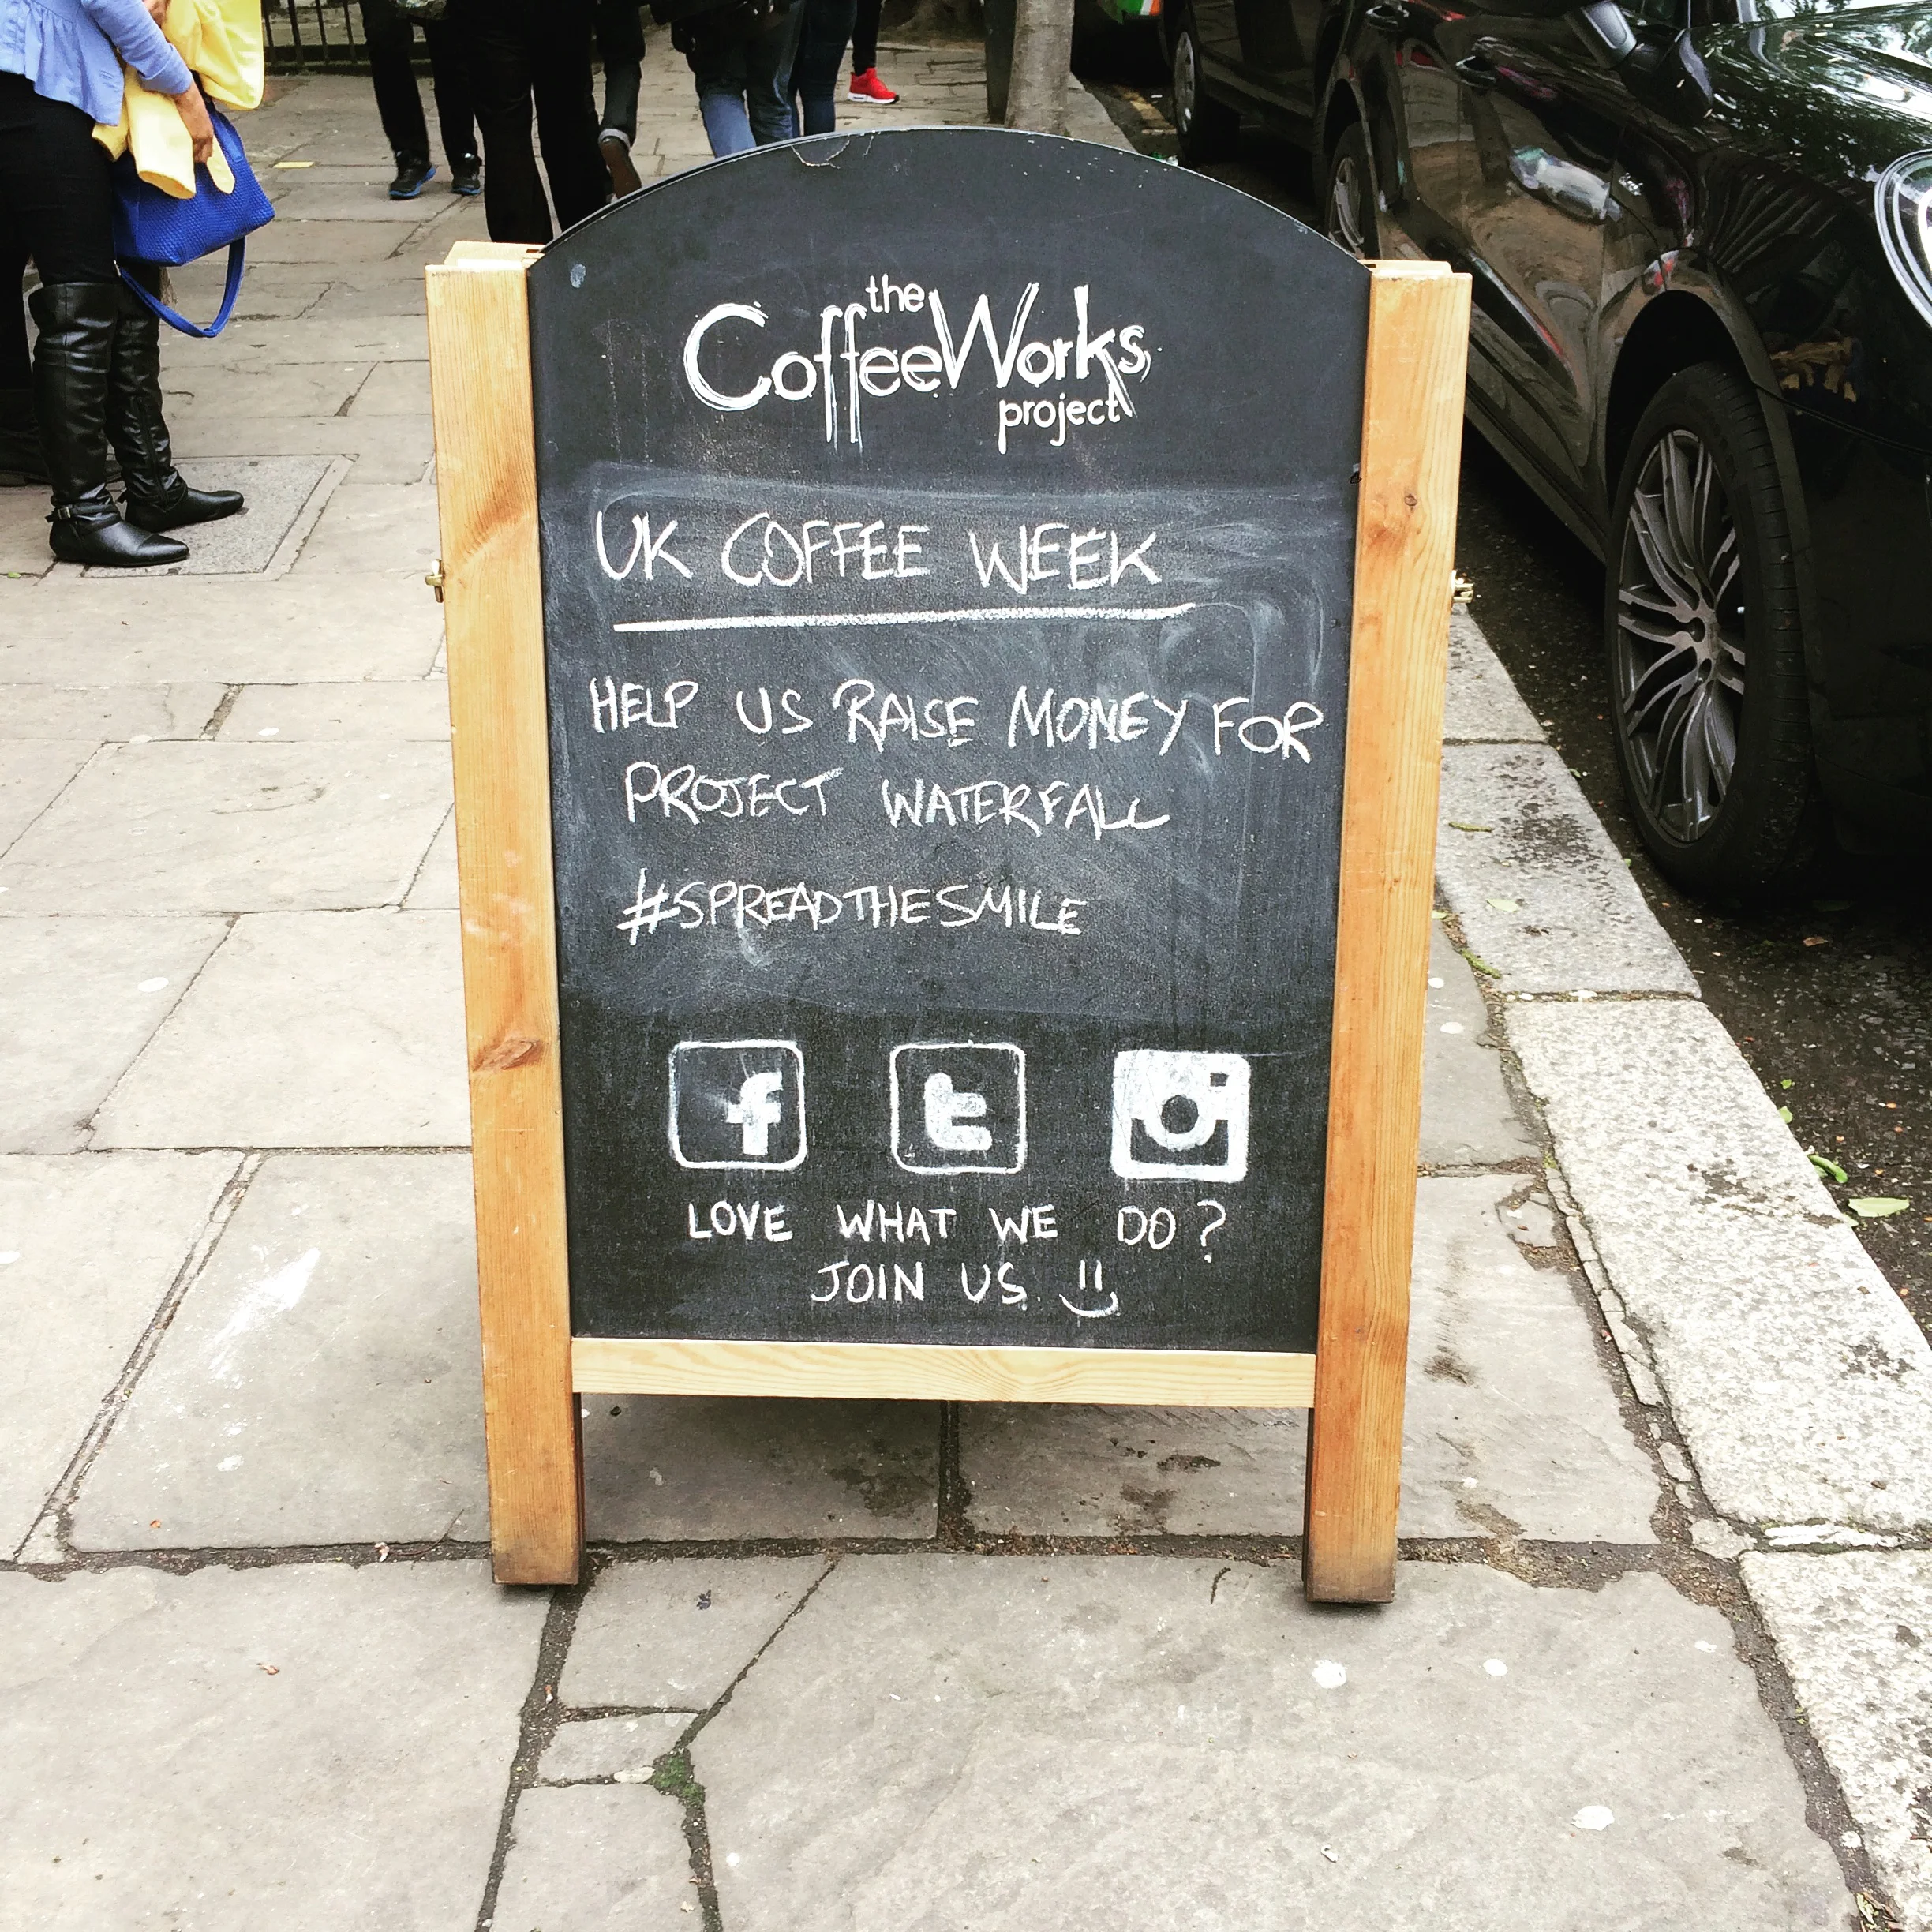 the
CoffeeWorks
project
UK COFFEE WEEK
HELP US RAISE MONEY FOR
PROJECT WATERFALL
#SPREADTHESMILE
f t
LOVE WHAT WE DO?
JOIN US =)